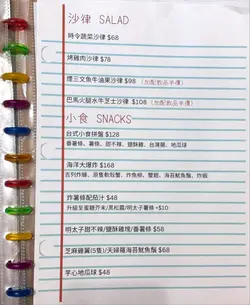 沙律 SALAD
時令蔬菜沙律 $68
烤雞肉沙律 $78
煙三文魚牛油果沙律 $98 (加配飲品半價)
巴馬火腿水牛芝士沙律 $108 (加配飲品半價)
小食 SNACKS
台式小食拼盤 $128
番薯條、薯條、甜不辣、鹽酥雞、台灣腸、地瓜球
海洋大爆炸 $168
吉列炸雞、原隻軟殼蟹、炸魚柳、蟹鉗、海苔魷魚鬚、炸蝦
炸薯條配茄汁 $48
升級至蜜糖芥末/黑松露/明太子薯條 +$10
明太子甜不辣/鹽酥雞塊/番薯條 $58
芝麻雞翼(5隻)/天婦羅海苔魷魚鬚 $68
芋心地瓜球 $48